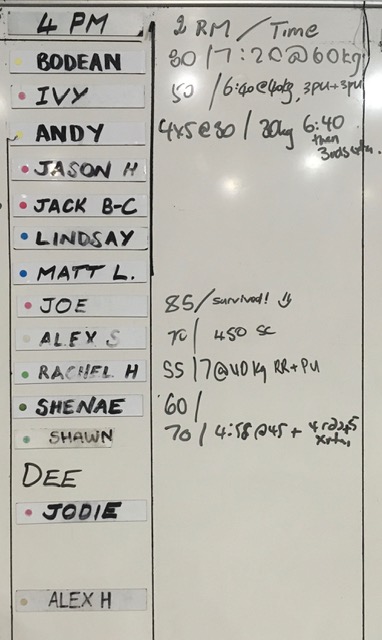 4 PM 2 RM / Time
BODEAN 80 / 7:20 @ 60kg
IVY 50 / 6:40 @ 40kg, 3PU + 3PU
ANDY 4x5 @ 30 / 30kg 6:40
then
JASON H
JACK B-C
LINDSAY
MATT L.
JOE 85 / survived! ☺
ALEX S 70 / 450 sc
RACHEL H 55 / 7 @ 40kg RR + PU
SHENAE 60 /
SHAWN 70 / 4:58 @ 45 +
DEE
JODIE
ALEX H